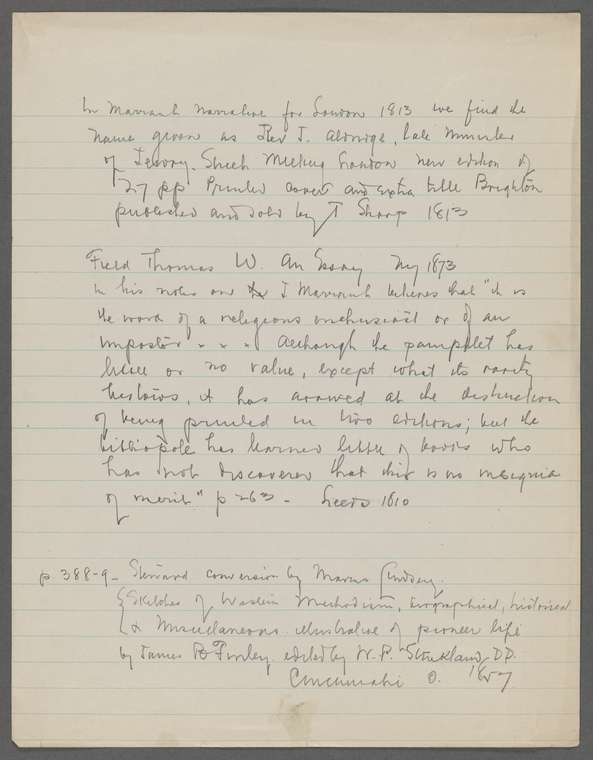 In Marrant narrative for London 1813 we find the
name given as Rev J. Aldridge, late Minister
of Jewry Street Meeting London new edition of
27 pp Printed cover and extra title Brighton
published and sold by T Sharp 1813
Field Thomas W. An Essay NY 1873
In his notes on J Marrant believes that "it is
the work of a religious enthusiast or of an
impostor " " " Although the pamphlet has
little or no value, except what its rarity
bestows, it has arrived at the distinction
of being printed in two editions; but the
bibliopole has learned little of books who
has not discovered that this is no insignia
of merit" p 263 - Leeds 1810
p. 388-9 - Steward conversion by Marcus Lindsay.
Sketches of Western Methodism, biographical, historical
& Miscellaneous illustrative of pioneer life
by James B Finley. edited by W. P. Strickland, DD.
Cincinnati O. 1857